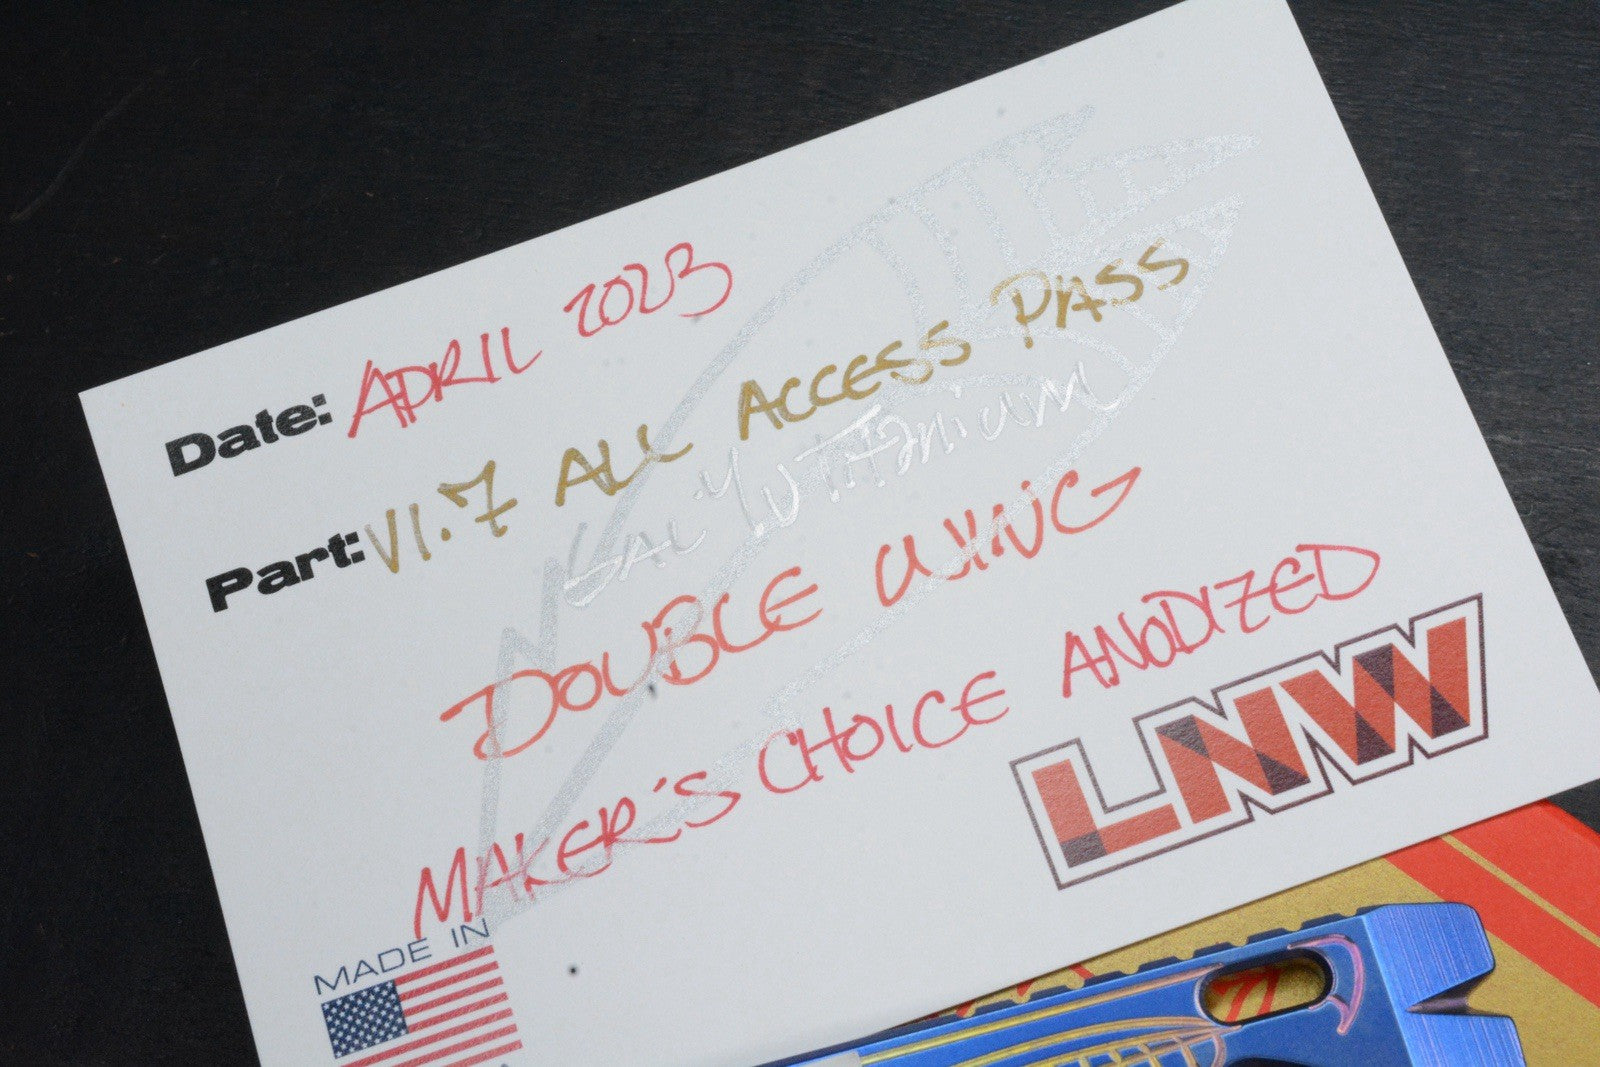 Date: APRIL 2023
Part: V1.7 ALL ACCESS PASS
6AL4V TiTANiUM
DOUBLE WING
MAKER'S CHOICE ANODIZED
LNW
MADE IN